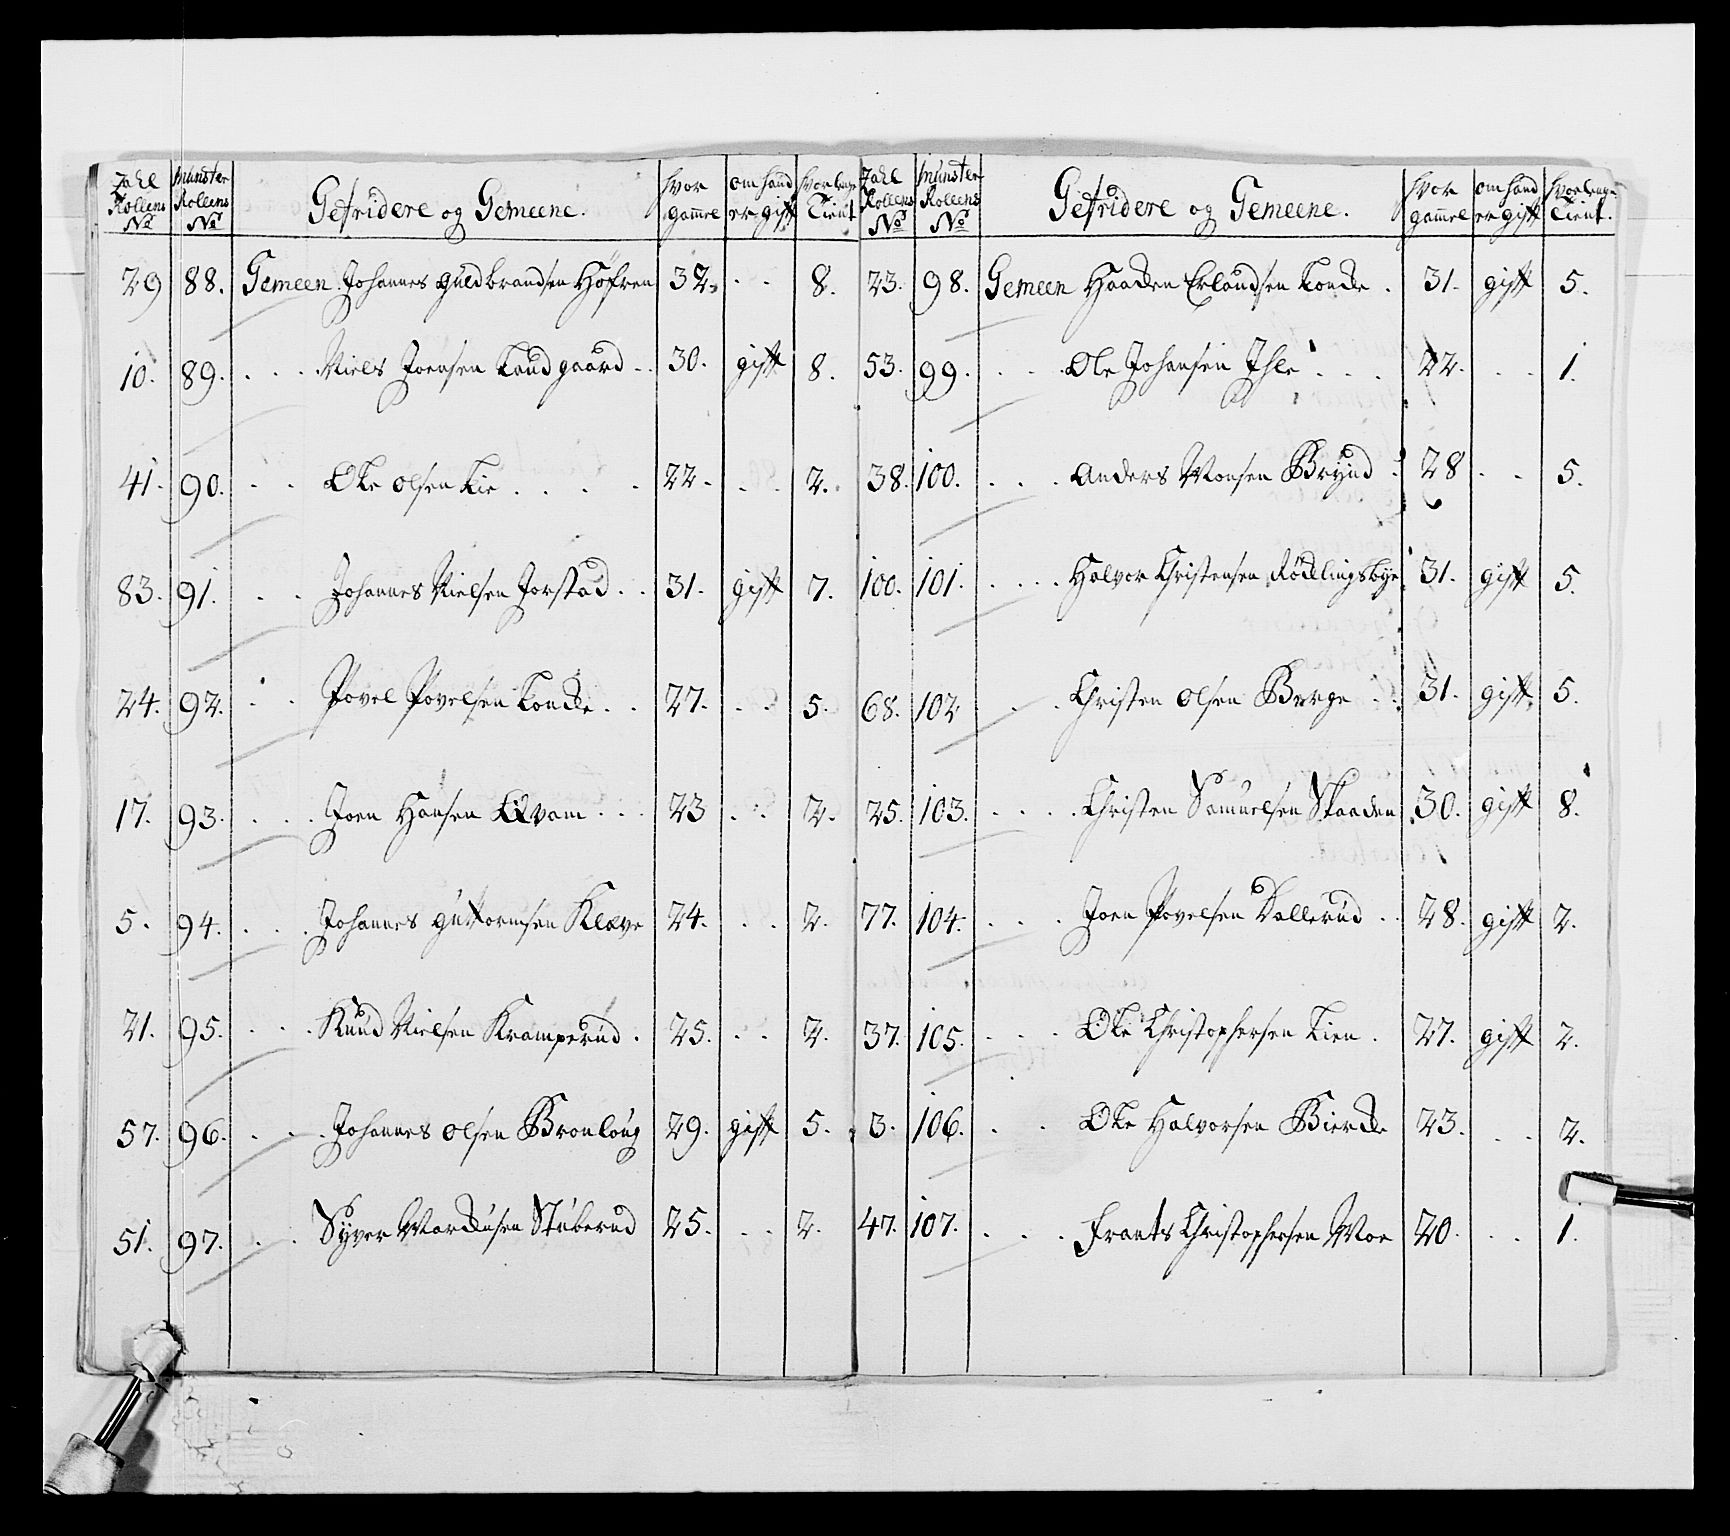 Zahl Rollens No | Munster Rollens No | Gefridere og Gemeene. | hvor gammel | om hand er gift | hvor lenge Tient
29 88. Gemeen Johannes Guldbrandsen Höfren 32. . . 8.
10. 89. . . . Niels Joensen Landgaard . . 30. gift 8.
41. 90. . . Ole Olsen Lie . . . . 22. . . 2.
83. 91. . . Johannes Nielsen Jorstad . . 31. gift 7.
24. 92. . . Povel Povelsen Londe . . 27. . . 5.
17. 93. . . . Joen Hansen Qvam . . . 23 . . 2.
5. 94. . . . Johannes Guttormsen Kleve 24. . . 2.
21. 95. . . . Knud Nielsen Kramperud . 25. . . 2.
57. 96. . . . Johannes Olsen Bronlöug 29. gift 5.
51. 97. . . Syver Marcusen Stuberud 25. . . 2.
Zahl Rollens No | Munster Rollens No | Gefridere og Gemeene. | hvor gammel | om hand er gift | hvor lenge Tient.
23. 98. Gemeen Haaden Erlandsen Londe . 31. gift 5.
53. 99. . . . Ole Johansen Ihle . . . 22. . . 1.
38. 100. . . . Anders Monsen Brynd . 28 . . 5.
100. 101. . . . . Halvor Christensen Rödlingsbye 31. gift 5.
68. 102 . . Christen Olsen Berge . . 31. gift 5.
25. 103. . . . . Christen Samuelsen Skaaden 30. gift 8.
77. 104. . . . Joen Povelsen Dallerud . . 28. gift 2.
37. 105. . . . Ole Christophersen Lien . 27. gift 2.
3. 106. . . Ole Halvorsen Bierke 23. . . 2.
47. 107. . . . Frants Christophersen Moe 20. . . 1.